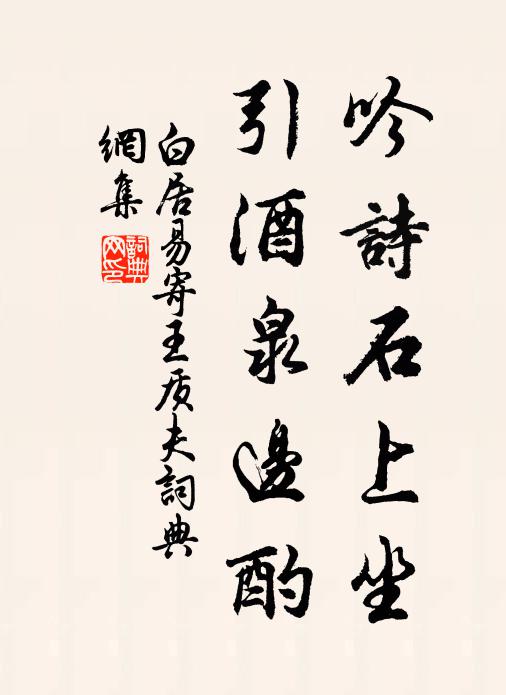 吟詩石上坐
引酒泉邊酌
白居易寄王质夫詞典
網集
詞典网印